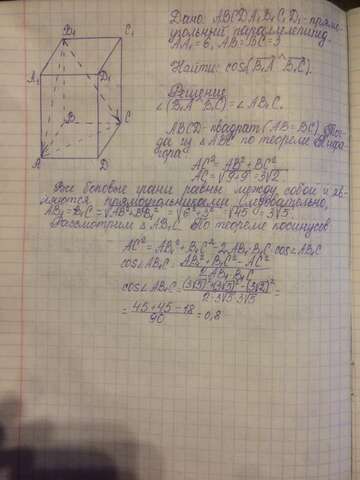 Дано: ABCDA₁B₁C₁D₁ - прямо-
угольный параллелепипед.
AA₁ = 6, AB = BC = 3
Найти: cos(B₁A ^ B₁C).
Решение
∠(B₁A ^ B₁C) = ∠AB₁C.
ABCD - квадрат (AB = BC). Тог-
да из △ABC по теореме Пифа-
гора:
AC² = AB² + BC²
AC = √9+9 = 3√2
Все боковые грани равны между собой и яв-
ляются прямоугольниками. Следовательно,
AB₁ = B₁C = √AB² + BB₁² = √6² + 3² = √45 = 3√5
Рассмотрим △AB₁C. По теореме косинусов
AC² = AB₁² + B₁C² - 2·AB₁·B₁C·cos∠AB₁C
cos∠AB₁C = AB₁² + B₁C² - AC² / 2·AB₁·B₁C
cos∠AB₁C = (3√5)² + (3√5)² - (3√2)² / 2·3√5·3√5 =
= 45 + 45 - 18 / 90 = 0,8
B₁
C₁
A₁
D₁
B
C
A
D